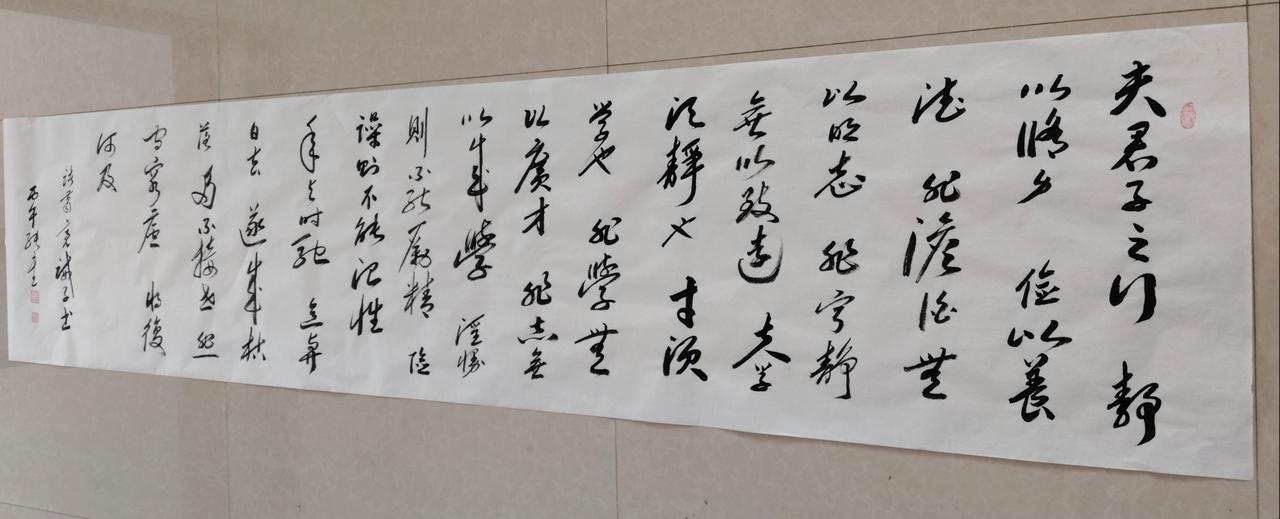 夫君子之行 靜
以脩身 儉以養
德 非澹泊無
以明志 非寧靜
無以致遠 夫學
須靜也 才須
學也 非學無
以廣才 非志無
以成學 淫慢
則不能勵精 險
躁則不能冶性
年与时馳 意與
日去 遂成枯
落 多不接世 悲
守窮廬 將復
何及
諸葛亮誡子書
丙午